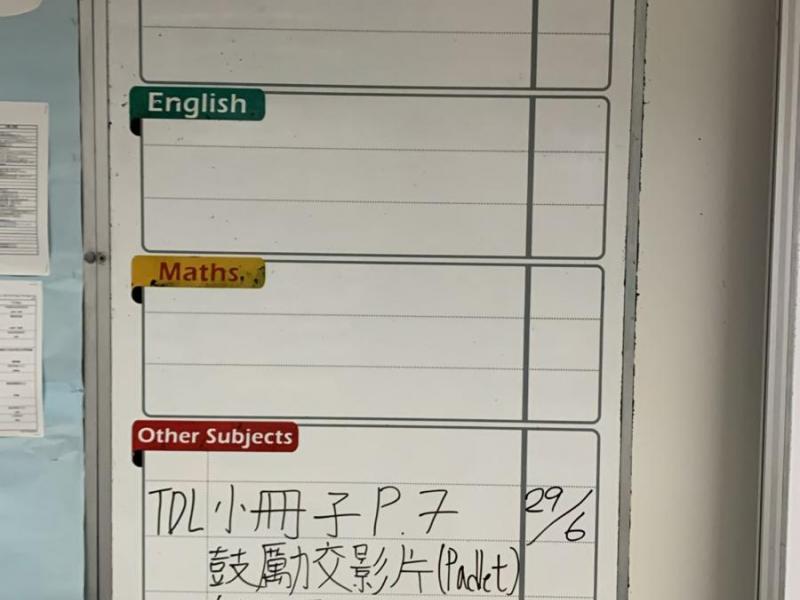 English
Maths
Other Subjects
TDL 小冊子 P.7 29/6
鼓勵交影片(Padlet)